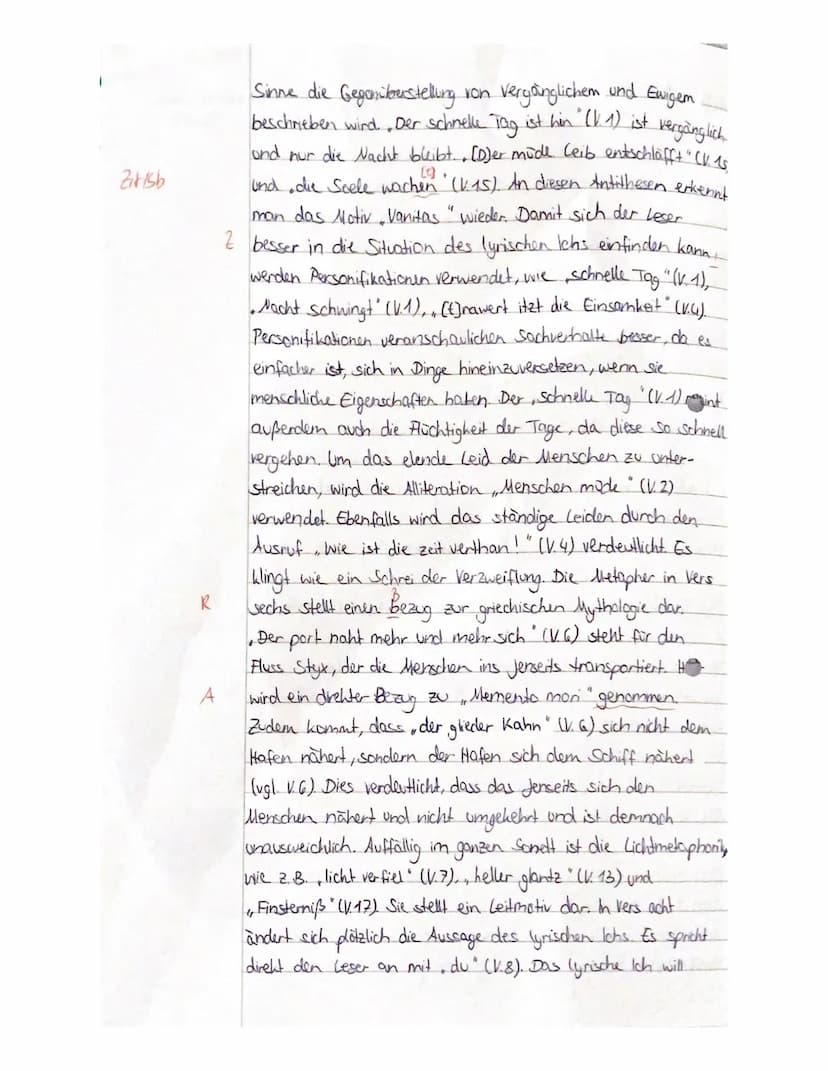 Sinne die Gegenüberstellung von Vergänglichem und Ewigem
beschrieben wird. „Der schnelle Tag ist hin" (V.1) ist vergänglich
und nur die Nacht bleibt. „[D]er müde Leib entschläfft" (V.15
[t]
Zit/Sb
und „die Seele wachen" (V.15). In diesen Antithesen erkennt
man das Motiv „Vanitas" wieder. Damit sich der Leser
Z
besser in die Situation des lyrischen Ichs einfinden kann,
werden Personifikationen verwendet, wie „schnelle Tag" (V.1),
„Nacht schwingt" (V.1), „[t]rawert itzt die Einsamkeit" (V.4).
Personifikationen veranschaulichen Sachverhalte besser, da es
einfacher ist, sich in Dinge hineinzuversetzen, wenn sie
menschliche Eigenschaften haben. Der „schnelle Tag" (V.1) meint
außerdem auch die Flüchtigkeit der Tage, da diese so schnell
vergehen. Um das elende Leid der Menschen zu unter-
streichen, wird die Alliteration „Menschen müde" (V.2)
verwendet. Ebenfalls wird das ständige Leiden durch den
Ausruf „Wie ist die zeit verthan!" (V.4) verdeutlicht. Es
klingt wie ein Schrei der Verzweiflung. Die Metapher in Vers
B
R
sechs stellt einen Bezug zur griechischen Mythologie dar.
„Der port naht mehr und mehr sich" (V.6) steht für den
Fluss Styx, der die Menschen ins Jenseits transportiert.
A
wird ein direkter Bezug zu „Memento mori" genommen.
Zudem kommt, dass „der glieder Kahn" (V.6) sich nicht dem
Hafen nähert, sondern der Hafen sich dem Schiff nähert
(vgl. V.6). Dies verdeutlicht, dass das Jenseits sich den
Menschen nähert und nicht umgekehrt und ist demnach
unausweichlich. Auffällig im ganzen Sonett ist die Lichtmetaphorik,
wie z.B. „licht verfiel" (V.7), „heller glantz" (V.13) und
„Finsterniß" (V.17). Sie stellt ein Leitmotiv dar. In Vers acht
ändert sich plötzlich die Aussage des lyrischen Ichs. Es spricht
direkt den Leser an mit „du" (V.8). Das lyrische Ich will